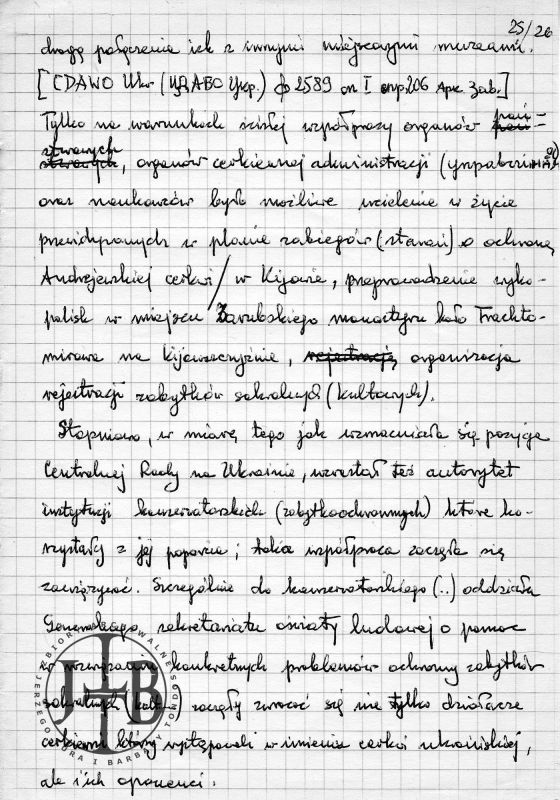 25/26
drogę połączenia ich z innymi miejscowymi muzeami.
[CDAWO Ukr (ЦДАВО Укр.) ф 2589 оп I спр.206 Арк. Заб.]
Tylko na warunkach ścisłej współpracy organów pań-
stwowych, organów cerkiewnej administracji
oraz naukowców było możliwe wcielenie w życie
przewidywanych w planie zabiegów (starań) o ochronę
Andrejewskiej cerkwi / w Kijowie, przeprowadzenie wyko-
palisk w miejscu Zarubskiego monastyru koło Trachto-
mirowa na Kijowszczyźnie, rejestrację organizacja
rejestracji zabytków sakralnych (kultowych).
Stopniowo, w miarę tego jak wzmacniała się pozycja
Centralnej Rady na Ukrainie, wzrastał też autorytet
instytucji konserwatorskich (zabytkoochronnych) które ko-
rzystały z jej poparcia; taka współpraca zaczęła się
zawiązywać. Szczególnie do konserwatorskiego (..) oddziału
Generalnego sekretariatu oświaty ludowej o pomoc
w rozwiązaniu konkretnych problemów ochrony zabytków
sakralnych zaczęły zwracać się nie tylko działacze
cerkiewni którzy występowali w imieniu cerkwi ukraińskiej,
ale i ich oponenci.
JTB